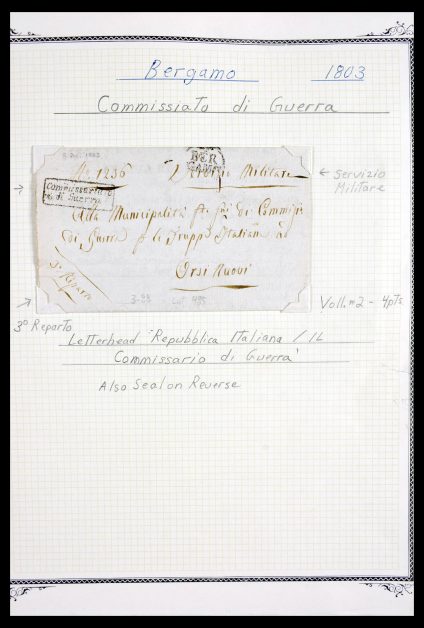 Bergamo 1803
Commissiato di Guerra
No 1236
BER
GAMO
Servizio Militare
← Servizio
Militare
Commissario
di Guerra
Alla Municipalità
di Guerra
Italiana
Orsi Nuovi
3º Reparto
3º Reparto
Voll. #2 - 4pts.
Letterhead "Repubblica Italiana / IL
Commissario di Guerra"
Also Seal on Reverse